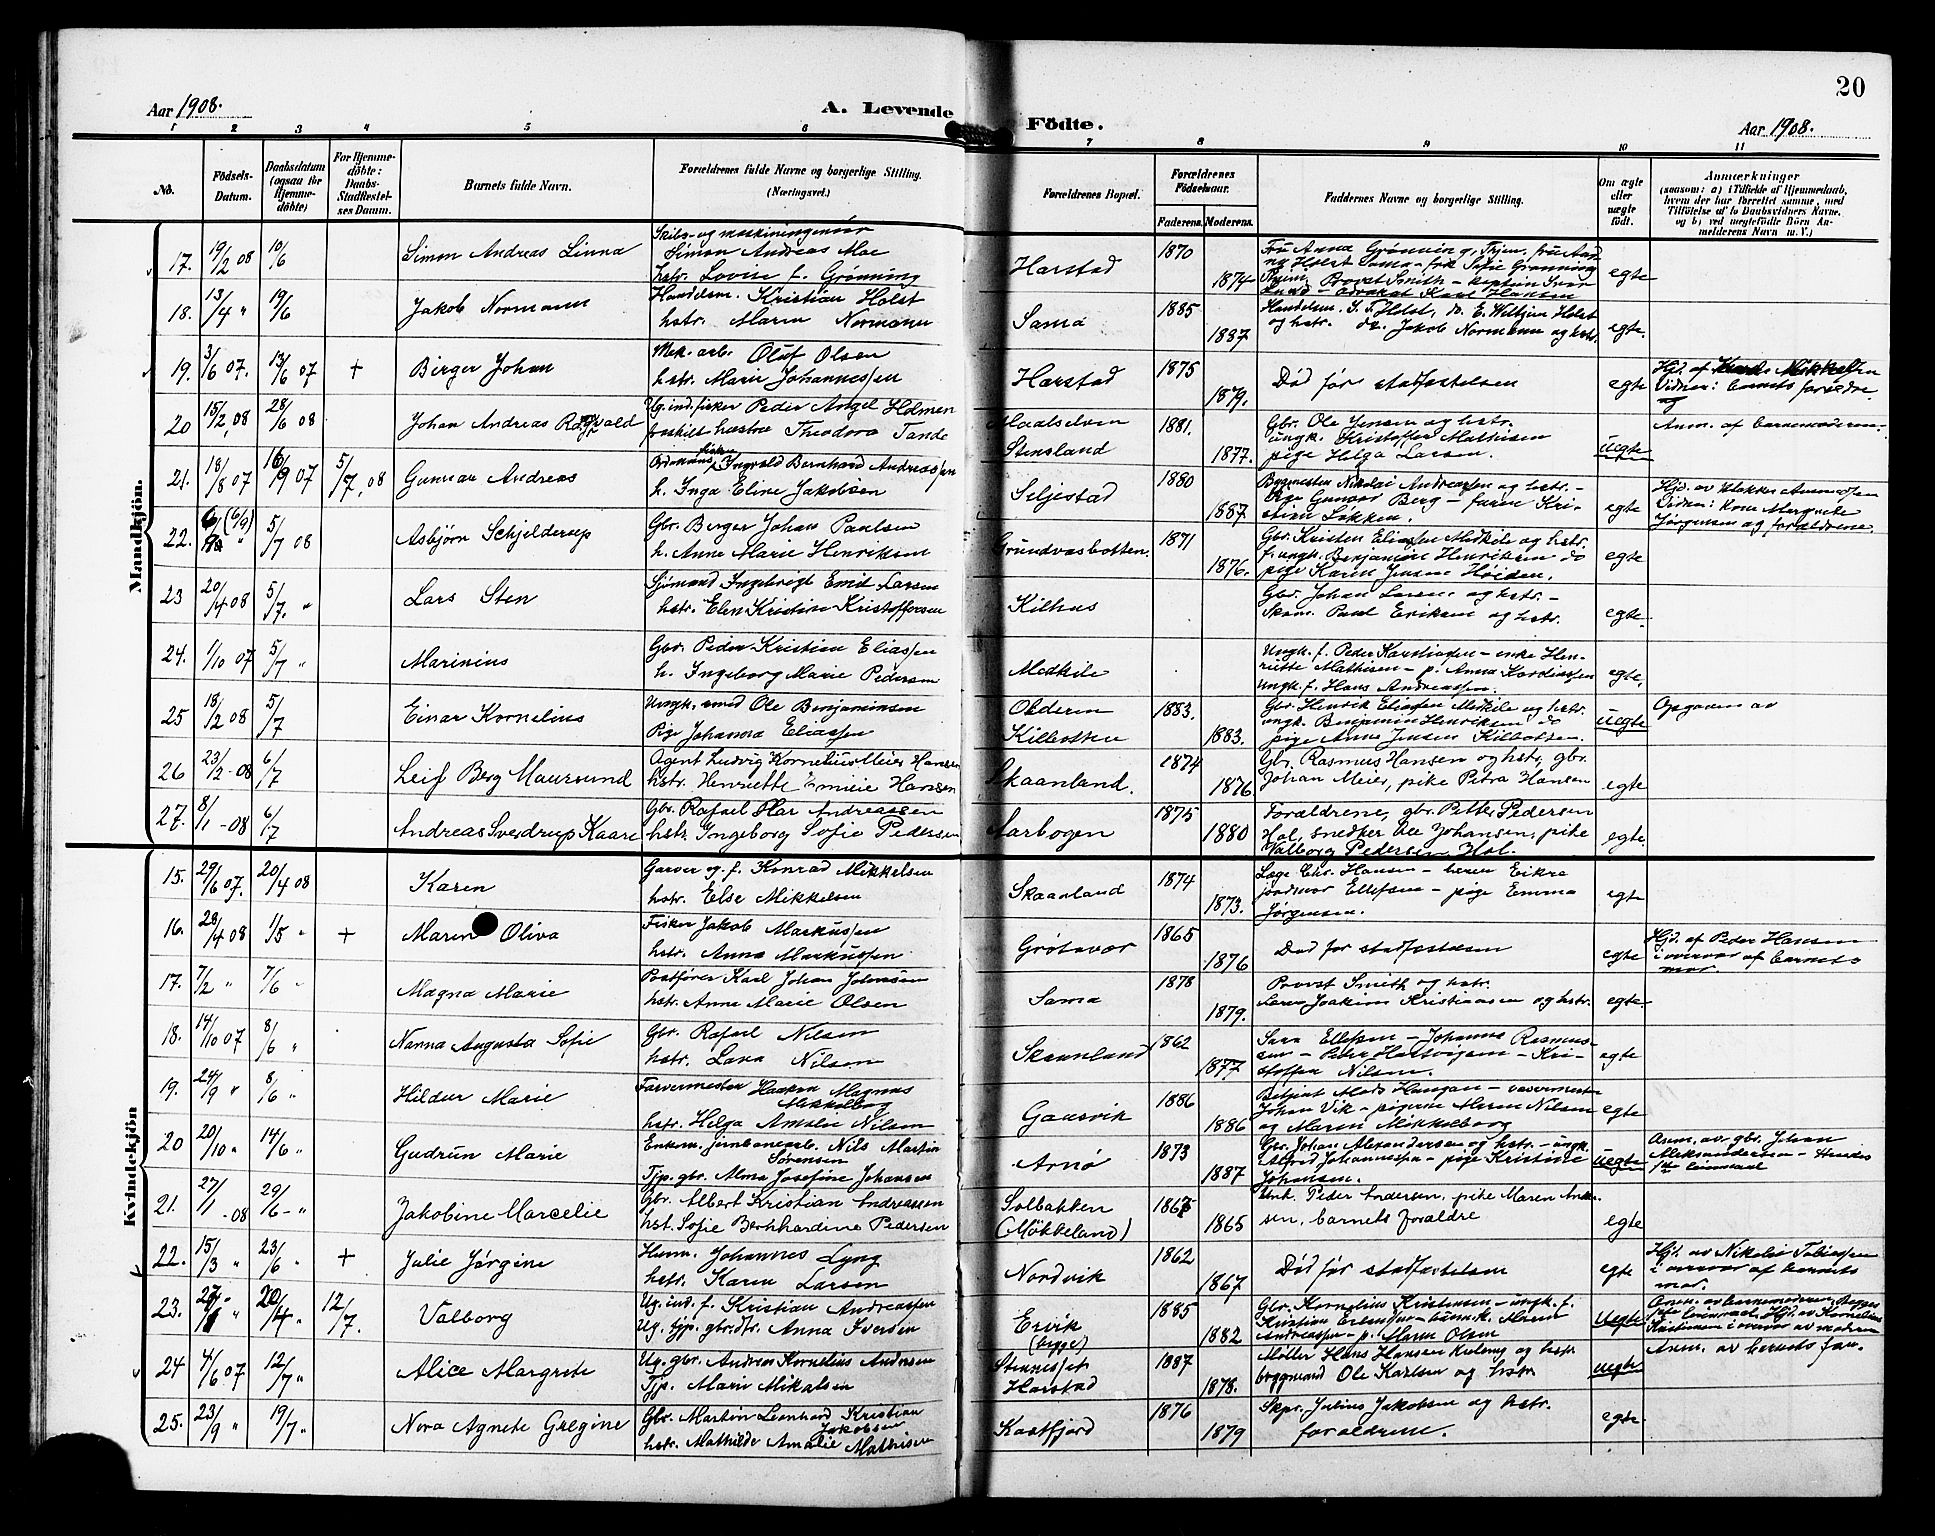 20
Aar 1908.
A. Levende
Födte.
Aar 1908.
1 2 3 4 5 6 7 8 9 10 11
No.
Födsels-
Datum.
Daabsdatum
(ogsaa for
Hjemme-
döbte)
For Hjemme-
döbte:
Daabs-
Stadfæstel-
ses Datum.
Barnets fulde Navn.
Forældrenes fulde Navne og borgerlige Stilling.
(Næringsvei.)
Forældrenes Bopæl.
Forældrenes
Födselsaar.
Faderens. Moderens.
Faddernes Navne og borgerlige Stilling.
Om ægte
eller
uægte
födt.
Anmærkninger
(saasom: a) i Tilfælde af Hjemmedaab,
hvem der har forrettet samme, med
Tilföielse af to Daabsvidners Navne,
og b) ved uægtefödte Börn An-
melderens Navn m. V.)
Mandkjön.
17. 19/2 08 10/6 Simon Andreas Linna
Skibs- og maskiningeniør
Simon Andreas Moe
hstr. Lovise f. Grønning
Harstad 1870 1874 egte
18. 13/4 " 19/6 Jakob Normann
Handelsm. Kristian Holst
hstr. Maren Normann
Sama 1885 1887
Handelsm. J. F. Holst, do. E. Wiltzin Holst
og hstr. do. Jakob Normann og hstr.
egte.
19. 3/6 07. 13/6 07 + Birger Johan
Mek. arb. Oluf Olsen
hstr. Marie Johannessen
Harstad 1875 1879.
Død før stadfæstelsen
egte
Vidner: barnets forældre
20 15/2 08 28/6 08 Johan Andreas Ragnvald
Ug. ind. fisker Peder Angel Holmen
fraskilt hustru Theodora Tande
Maalselven
Stensland
1881. 1877.
Gbr. Ole Jensen og hstr.
ungk. Kristoffer Mathisen
pige Helga Larsen.
uegte
Anm. af barnemoderen.
21. 18/8 07 16/9 07 5/7 08 Gunnar Andreas
Ingvald Bernhard Andreassen
h. Inga Eline Jakobsen
Seljestad 1880 1887
Bygmester Nikolai Andreassen og hstr.-
pige Gunvor Berg - faren Kri-
stian Løkken.
egte
Hjd. av klokker Ammossen
Vidner: kone Margrete
Jørgensen og forældrene
22. (6/9) 5/7 08 Asbjørn Schjelderup
Gbr. Berger Johan Paulsen
h. Anne Marie Henriksen
Grundvasbotten. 1871 1876.
Gbr. Kristen Eliassen Medkile og hstr.
f. ungk. Benjamin Henriksen do
pige Karen Jensen Høiden.
egte
23 20/4 08 5/7. " Lars Sten
Sjømand Ingebrigt Emil Larsen
hstr. Elen Kristine Kristoffersen
Kilhus
Gbr. Johan Larsen og hstr. -
Skom. Paul Eriksen og hstr.
egte.
24. 1/10 07 5/7 " Marinius
Gbr. Peder Kristian Eliassen
h. Ingeborg Marie Pedersen
Medkile
Ungk. f. Peder Karstiansen - enke Hen-
riette Mathisen - p. Anna Kordiassen
Ungk. f. Hans Andreassen.
egte,
25 18/2 08 5/7 Einar Kornelius
Ungk. smed Ole Benjaminsen
Pige Johanna Eliassen
Olderen
Kilbotten
1883. 1883.
Gbr. Henrik Eliassen Medkile og hstr.
ungk. Benjamin Henriksen do
pige Anne Jensen Kilbotten.
uegte
Opgaven av
26 23/2 -08 6/7 Leif Berg Maursund
Agent Ludvig Kornelius Meier Hansen
hstr. Henriette Emilie Hansen
Skaanland 1874 1876
Gbr. Rasmus Hansen og hstr, gbr.
Johan Meier, pike Petra Hansen
egte
27. 8/1 -08 6/7 Andreas Sverdrup Kaare
Gbr. Rafael Hlar Andreassen
hstr. Ingeborg Sofie Pedersen
Aarbogen 1875 1880
Forældrene, gbr. Petter Pedersen
Hol, snedker Ole Johansen, pike
Valborg Pedersen Hol.
egte.
Kvindekjön
15. 29/6 07. 20/4 08 Karen
Garver og f. Konrad Mikkelsen
hstr. Else Mikkelsen
Skaanland 1874 1873.
Læge Chr. Hansen - herr Eikre
jordmor Ellefsen - pige Emma
Jørgensen.
egte
16. 28/4 08 1/5 " + Maren Oliva
Fisker Jakob Markussen
hstr. Anna Markussen
Grøtavær 1865 1876
Død før stadfæstelsen
egte
Hjd. af Peder Hansen
i overvær af barnets
mor.
17. 7/2 " 7/6 " Magna Marie
Postfører Karl Johan Johnsen
hstr. Anne Marie Olsen
Sama 1878 1879.
Provst Smith og hstr.
Lærer Joakim Kristiansen og hstr.
egte
18. 14/10 07 8/6 " Nanna Augusta Sofie
Gbr. Rafael Nilsen
hstr. Lava Nilsen
Skaanland 1862 1877
Sara Ellefsen - Johannes Rasmus-
sen - Peder Hartvigsen - Kri-
stoffer Nilsen.
egte
19. 24/9 " 8/6 " Hildur Marie
Farvermester Haakon Magnus
Mikkelborg
hstr. Helga Amalie Nilsen
Gausvik 1886 1886
Betjent Mads Haugan - vævermester
Johan Vik - pigerne Maren Nilsen
og Maren Mikkelborg
egte
20 20/10 " 14/6 " Gudrun Marie
Enkem. jernbanearb. Nils Martin
Sørensen
Tjp. gbr. Alma Josefine Johansen
Arnø 1873 1887
Gbr. Johan Alexandersen og hstr. - ungk.
Alfred Johannessen - pige Kristine
Johansen.
uegte
Anm. av gbr. Johan
Aleksandersen - Hendes
1ste leiermaal
21. 27/1 -08 29/6 - " Jakobine Marcelie
Gbr. Albert Kristian Andreassen
hst. Sofie Bernhardine Pedersen
Solbakken
(Møkkeland)
1867 1865
Ungk. Peder Andersen, pike Maren Ank-
sen, barnets forældre
egte
22. 15/3 " 23/6 " + Julie Jørgine
Husm. Johannes Lyng
hstr. Karen Larsen
Nordvik 1862 1867
Død før stadfæstelsen
egte
Hjd. av Nikolai Tobiassen
i overvær af barnets
mor.
23. 20/4 12/7. Valborg
Ug. ind. f. Kristian Andreassen
Ug. tjp. gbr.dtr. Anna Iversen
Ervik
(begge)
1885 1882
Gbr. Kornelius Kristensen - ungk. f.
Andreassen - p. Maren Olsen
uegte
Anm. av barnemoderen, Begges
1ste leiermaal. Hjd. av Kornelius
Kristensen i overvær av moderen
24 4/6 07 12/7 " Alice Margrete
Ug. gbr. Andreas Kornelius Andersen
Tjp. Marie Mikalsen
Stenneset
Harstad
1887 1878.
Møller Hans Hansen Kuleng og hstr
byggmand Ole Karlsen og hstr
uegte
Anm. av barnets far.
25. 23/9 " 19/7 " Nora Agnete Gregine
Gbr. Martin Leonhard Kristian
Jakobsen
hstr. Mathilde Amalie Mathisen
Kastfjord 1876 1879
Skpr. Julius Jakobsen og hstr.
forældrene.
egte.